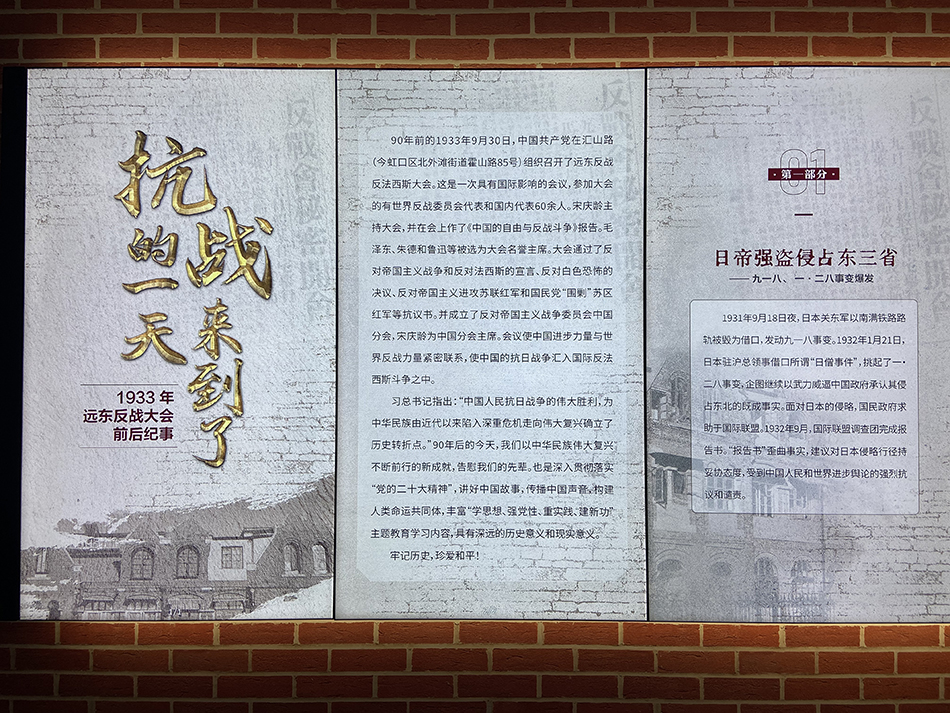 抗战
的一天
来到了
1933 年
远东反战大会
前后纪事
90年前的1933年9月30日，中国共产党在汇山路
（今虹口区北外滩街道霍山路85号）组织召开了远东反战
反法西斯大会。这是一次具有国际影响的会议，参加大会
的有世界反战委员会代表和国内代表60余人。宋庆龄主
持大会，并在会上作了《中国的自由与反战斗争》报告。毛
泽东、朱德和鲁迅等被选为大会名誉主席。大会通过了反
对帝国主义战争和反对法西斯的宣言、反对白色恐怖的
决议、反对帝国主义进攻苏联红军和国民党“围剿”苏区
红军等抗议书。并成立了反对帝国主义战争委员会中国
分会，宋庆龄为中国分会主席。会议使中国进步力量与世
界反战力量紧密联系，使中国的抗日战争汇入国际反法
西斯斗争之中。
习总书记指出：“中国人民抗日战争的伟大胜利，为
中华民族由近代以来陷入深重危机走向伟大复兴确立了
历史转折点。”90年后的今天，我们以中华民族伟大复兴
不断前行的新成就，告慰我们的先辈。也是深入贯彻落实
“党的二十大精神”，讲好中国故事，传播中国声音，构建
人类命运共同体，丰富“学思想、强党性、重实践、建新功”
主题教育学习内容，具有深远的历史意义和现实意义。
牢记历史，珍爱和平！
01
·第一部分·
日帝强盗侵占东三省
——九一八、一·二八事变爆发
1931年9月18日夜，日本关东军以南满铁路路
轨被毁为借口，发动九一八事变。1932年1月21日，
日本驻沪总领事借口所谓“日僧事件”，挑起了一·
二八事变，企图继续以武力威逼中国政府承认其侵
占东北的既成事实。面对日本的侵略，国民政府求
助于国际联盟。1932年9月，国际联盟调查团完成报
告书。“报告书”歪曲事实，建议对日本侵略行径持
妥协态度，受到中国人民和世界进步舆论的强烈抗
议和谴责。